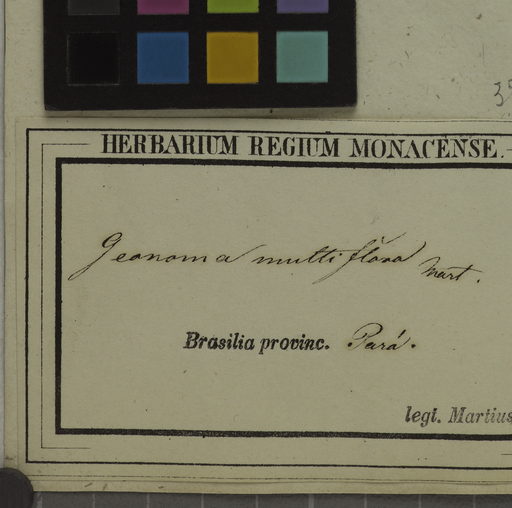 HERBARIUM REGIUM MONACENSE.
Geonoma multiflora Mart.
Brasilia provinc. Pará.
legt. Martius